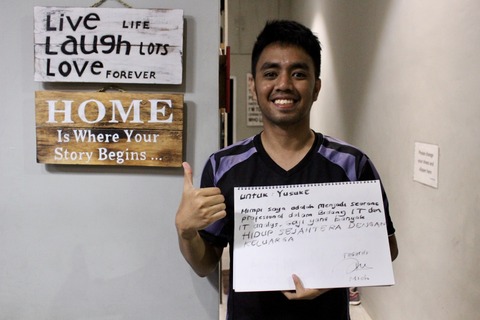 Live LIFE
Laugh LOTS
Love FOREVER
HOME
Is Where Your
Story Begins ...
untuk Yusuke
Mimpi saya adalah menjadi seorang
profesional dalam bidang IT dan
IT Gaji yang banyak
HIDUP SEJAHTERA DENGAN
KELUARGA